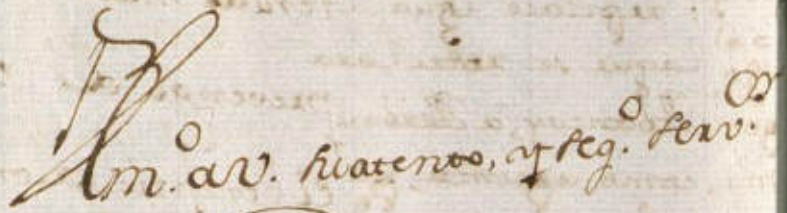 B.l.m.º a V. su atento, y seg.º serv.ᵒʳ